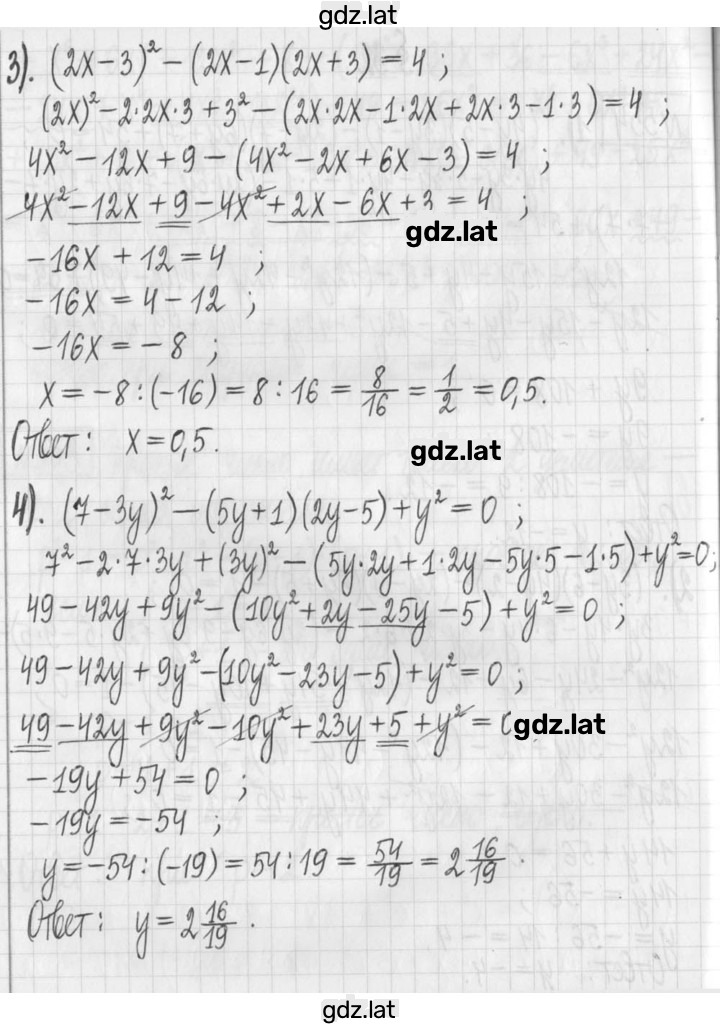 gdz.lat
3). (2x-3)² - (2x-1)(2x+3) = 4 ;
(2x)² - 2·2x·3 + 3² - (2x·2x - 1·2x + 2x·3 - 1·3) = 4 ;
4x² - 12x + 9 - (4x² - 2x + 6x - 3) = 4 ;
4x² - 12x + 9 - 4x² + 2x - 6x + 3 = 4 ;
gdz.lat
-16x + 12 = 4 ;
-16x = 4 - 12 ;
-16x = -8 ;
x = -8 : (-16) = 8 : 16 = 8/16 = 1/2 = 0,5.
Ответ: x = 0,5.
gdz.lat
4). (7-3y)² - (5y+1)(2y-5) + y² = 0 ;
7² - 2·7·3y + (3y)² - (5y·2y + 1·2y - 5y·5 - 1·5) + y² = 0;
49 - 42y + 9y² - (10y² + 2y - 25y - 5) + y² = 0 ;
49 - 42y + 9y² - (10y² - 23y - 5) + y² = 0 ;
49 - 42y + 9y² - 10y² + 23y + 5 + y² = 0
gdz.lat
-19y + 54 = 0 ;
-19y = -54 ;
y = -54 : (-19) = 54 : 19 = 54/19 = 2 16/19 .
Ответ: y = 2 16/19 .
gdz.lat